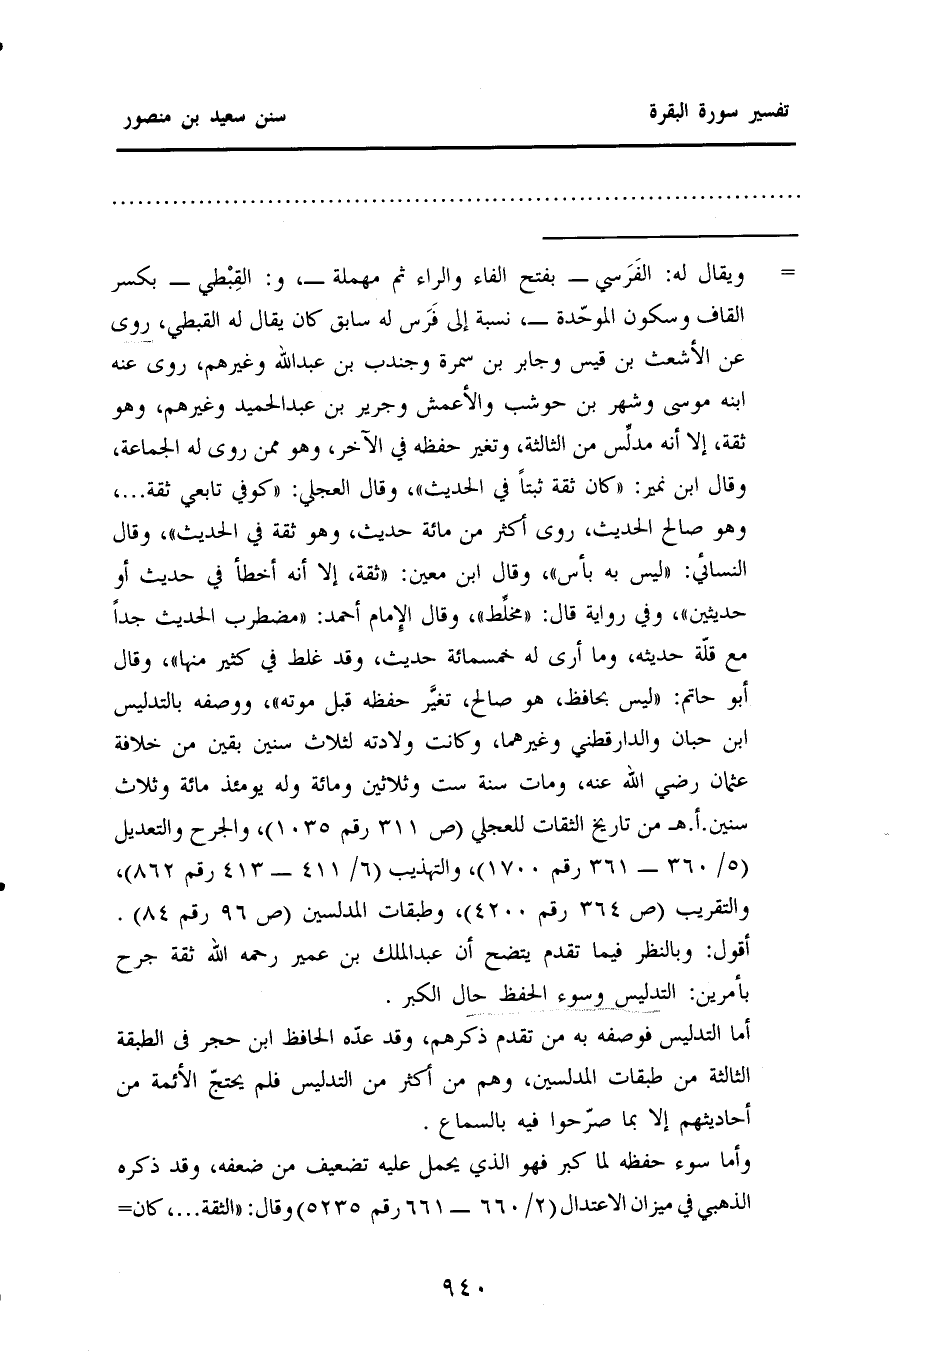 تفسير سورة البقرة سنن سعيد بن منصور
= ويقال له: الفَرَسي ــ بفتح الفاء والراء ثم مهملة ــ، و: القِبْطي ــ بكسر
القاف وسكون الموحّدة ــ، نسبة إلى فَرَس له سابق كان يقال له القبطي، روى
عن الأشعث بن قيس وجابر بن سمرة وجندب بن عبدالله وغيرهم، روى عنه
ابنه موسى وشهر بن حوشب والأعمش وجرير بن عبدالحميد وغيرهم، وهو
ثقة، إلا أنه مدلِّس من الثالثة، وتغير حفظه في الآخر، وهو ممن روى له الجماعة،
وقال ابن نمير: «كان ثقة ثبتاً في الحديث»، وقال العجلي: «كوفي تابعي ثقة...،
وهو صالح الحديث، روى أكثر من مائة حديث، وهو ثقة في الحديث»، وقال
النسائي: «ليس به بأس»، وقال ابن معين: «ثقة، إلا أنه أخطأ في حديث أو
حديثين»، وفي رواية قال: «مخلِّط»، وقال الإمام أحمد: «مضطرب الحديث جداً
مع قلّة حديثه، وما أرى له خمسمائة حديث، وقد غلط في كثير منها»، وقال
أبو حاتم: «ليس بحافظ، هو صالح، تغيَّر حفظه قبل موته»، ووصفه بالتدليس
ابن حبان والدارقطني وغيرهما، وكانت ولادته لثلاث سنين بقين من خلافة
عثمان رضي الله عنه، ومات سنة ست وثلاثين ومائة وله يومئذ مائة وثلاث
سنين.أ.هـ من تاريخ الثقات للعجلي (ص ٣١١ رقم ١٠٣٥)، والجرح والتعديل
(٥/ ٣٦٠ ــ ٣٦١ رقم ١٧٠٠)، والتهذيب (٦/ ٤١١ ــ ٤١٣ رقم ٨٦٢)،
والتقريب (ص ٣٦٤ رقم ٤٢٠٠)، وطبقات المدلسين (ص ٩٦ رقم ٨٤) .
أقول: وبالنظر فيما تقدم يتضح أن عبدالملك بن عمير رحمه الله ثقة جرح
بأمرين: التدليس وسوء الحفظ حال الكبر .
أما التدليس فوصفه به من تقدم ذكرهم، وقد عدّه الحافظ ابن حجر فى الطبقة
الثالثة من طبقات المدلسين، وهم من أكثر من التدليس فلم يحتجّ الأئمة من
أحاديثهم إلا بما صرّحوا فيه بالسماع .
وأما سوء حفظه لما كبر فهو الذي يحمل عليه تضعيف من ضعفه، وقد ذكره
الذهبي في ميزان الاعتدال (٢/ ٦٦٠ ــ ٦٦١ رقم ٥٢٣٥) وقال: «الثقة...، كان=
٩٤٠